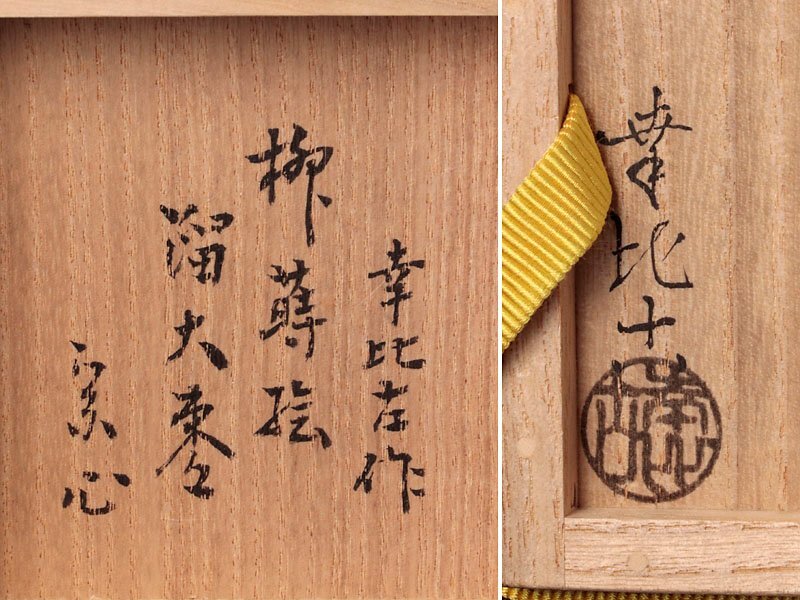 幸比古作
柳蒔絵
溜大棗
宗心
幸比古